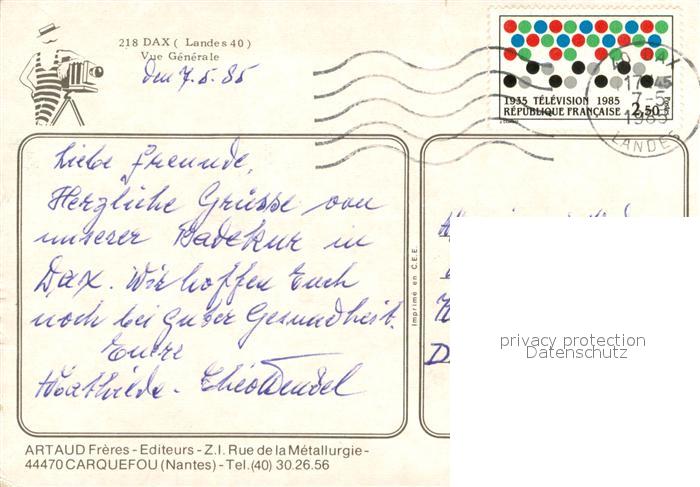 218 DAX ( Landes 40 )
Vue Générale
den 7.5.85
1935 TÉLÉVISION 1985
RÉPUBLIQUE FRANÇAISE 2,50
40 AX
17 45
7-5
1985
LANDES
Liebe Freunde,
Herzliche Grüsse von
unserer Badekur in
Dax. Wir hoffen Euch
noch bei guter Gesundheit.
Eure
Mathilde - Theo Wendel
Imprimé en C.E.E.
D
privacy protection
Datenschutz
ARTAUD Frères - Editeurs - Z.I. Rue de la Métallurgie -
44470 CARQUEFOU (Nantes) - Tel. (40) 30.26.56